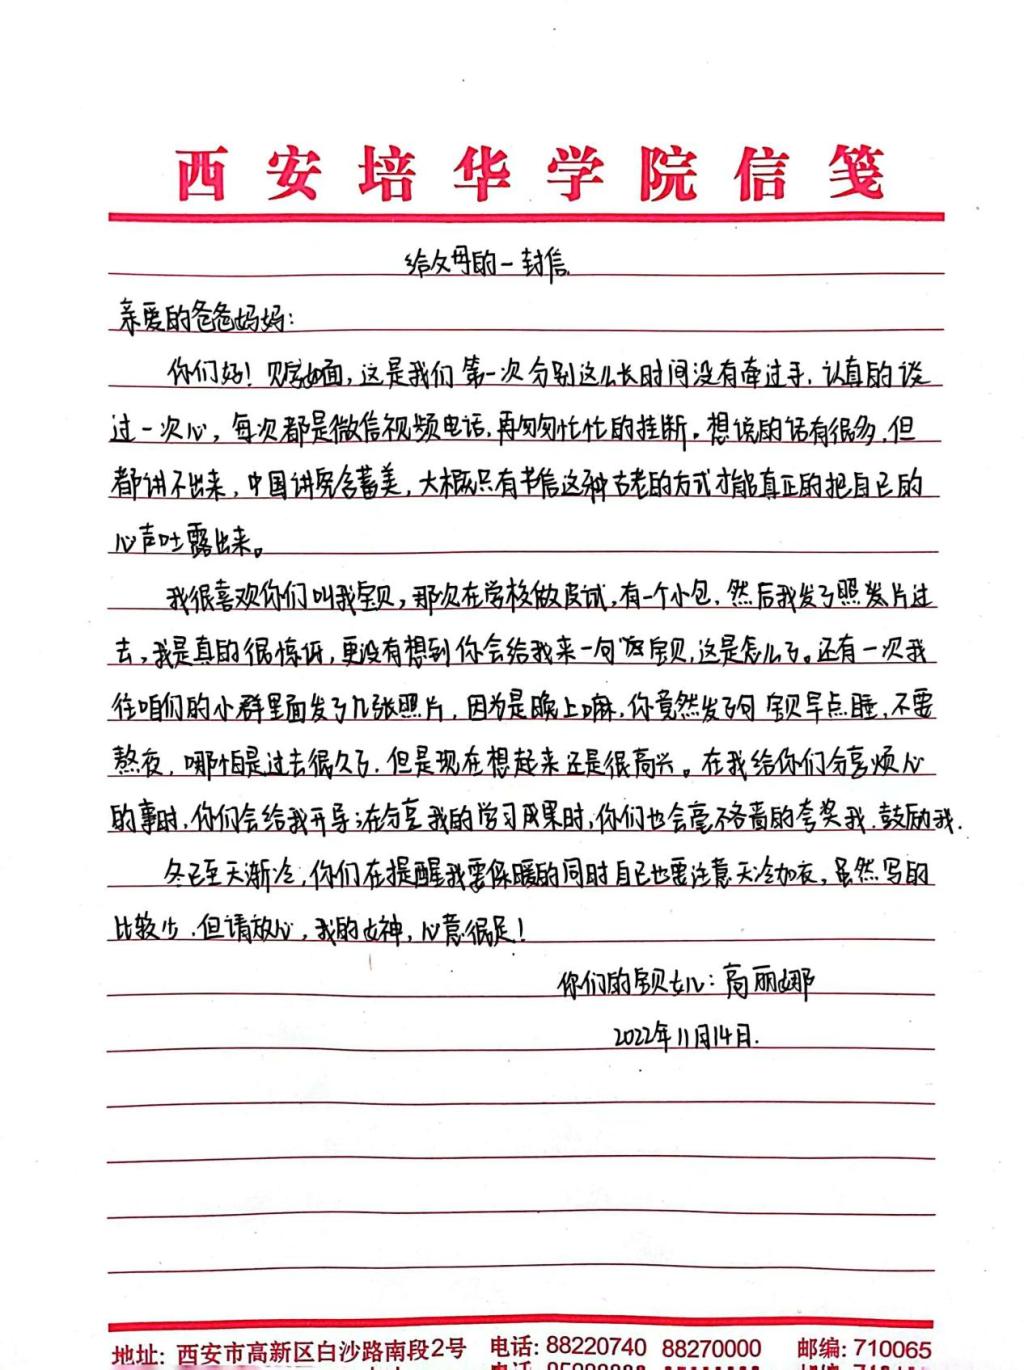 西安培华学院信笺
给父母的一封信
亲爱的爸爸妈妈：
你们好！见字如面，这是我们第一次分别这么长时间没有牵过手，认真的谈
过一次心，每次都是微信视频电话，再匆匆忙忙的挂断。想说的话有很多，但
都讲不出来，中国讲究含蓄美，大概只有书信这种古老的方式才能真正的把自己的
心声吐露出来。
我很喜欢你们叫我宝贝，那次在学校做皮试，有一个小包，然后我发了照片过
去，我是真的很惊讶，更没有想到你会给我来一句"宝贝，这是怎么了。还有一次我
往咱们的小群里面发了几张照片，因为是晚上嘛，你竟然发了句 宝贝早点睡，不要
熬夜，哪怕是过去很久了，但是现在想起来还是很高兴。在我给你们分享烦心
的事时，你们会给我开导；在分享我的学习成果时，你们也会毫不吝啬的夸奖我，鼓励我。
冬已至天渐冷，你们在提醒我要保暖的同时自己也要注意天冷加衣，虽然写的
比较少，但请放心，我的女神，心意很足！
你们的宝贝女儿：高丽娜
2022年11月14日.
地址: 西安市高新区白沙路南段2号 电话: 88220740 88270000 邮编: 710065